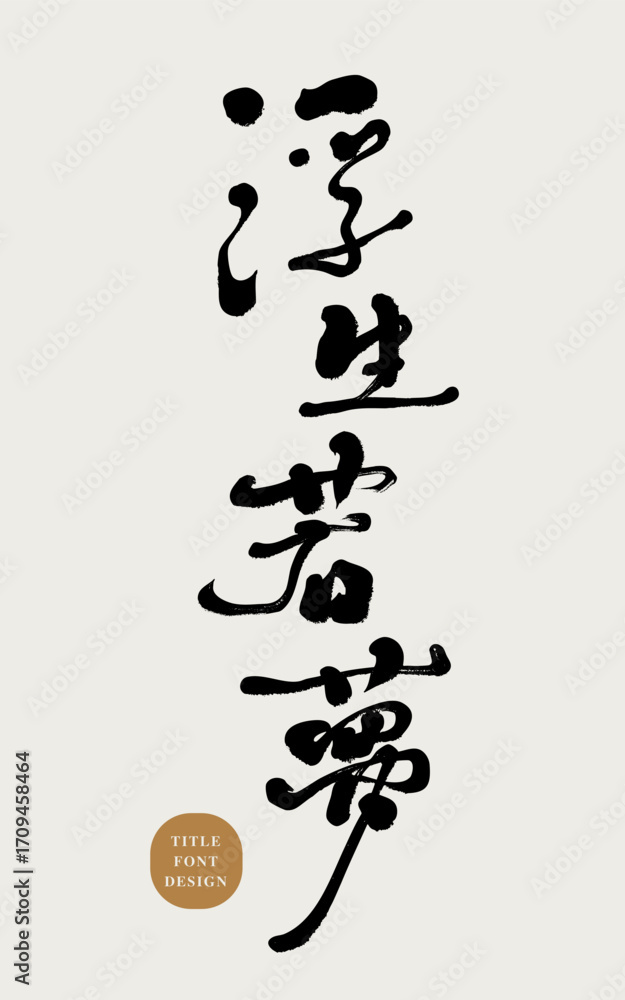 浮生若夢
TITLE
FONT
DESIGN
Adobe Stock | #1709458464